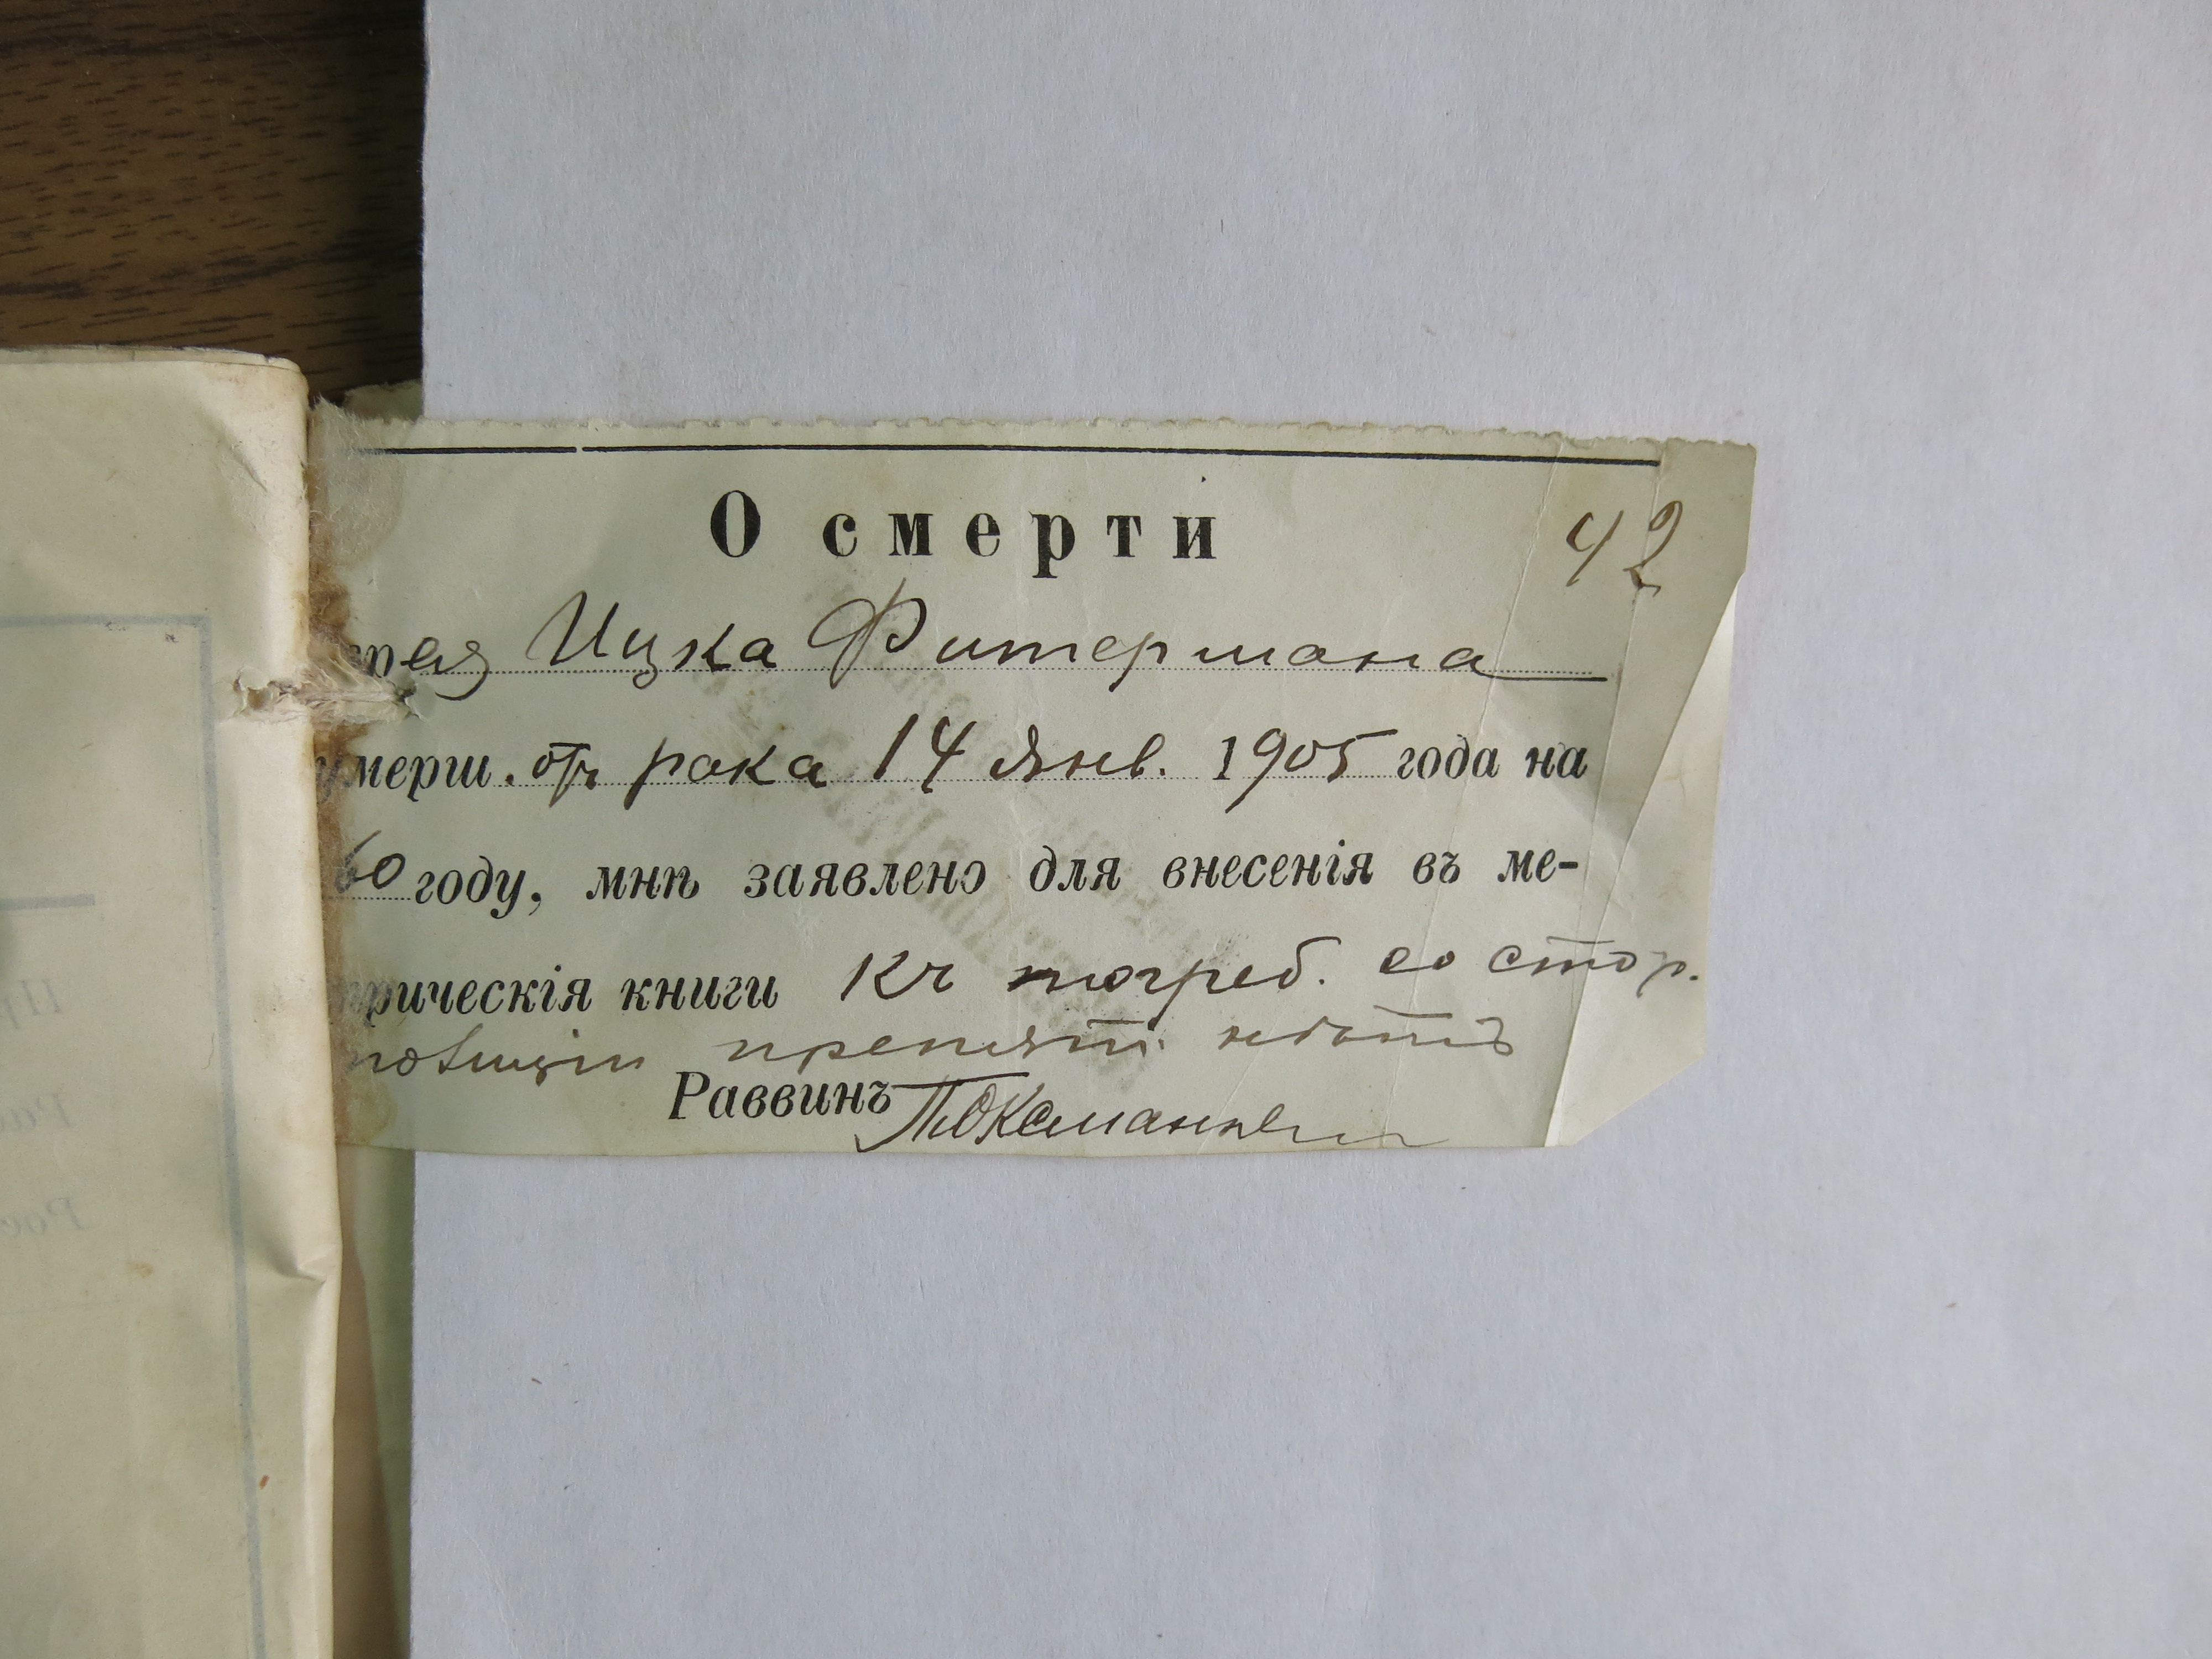 О смерти
42
рея Ицка Фитермана
умерш. отъ рака 14 Янв. 1905 года на
60 году, мнѣ заявлено для внесенія въ ме-
трическія книги Къ погреб. со стор.
полиціи препятст. нѣтъ
Раввинъ